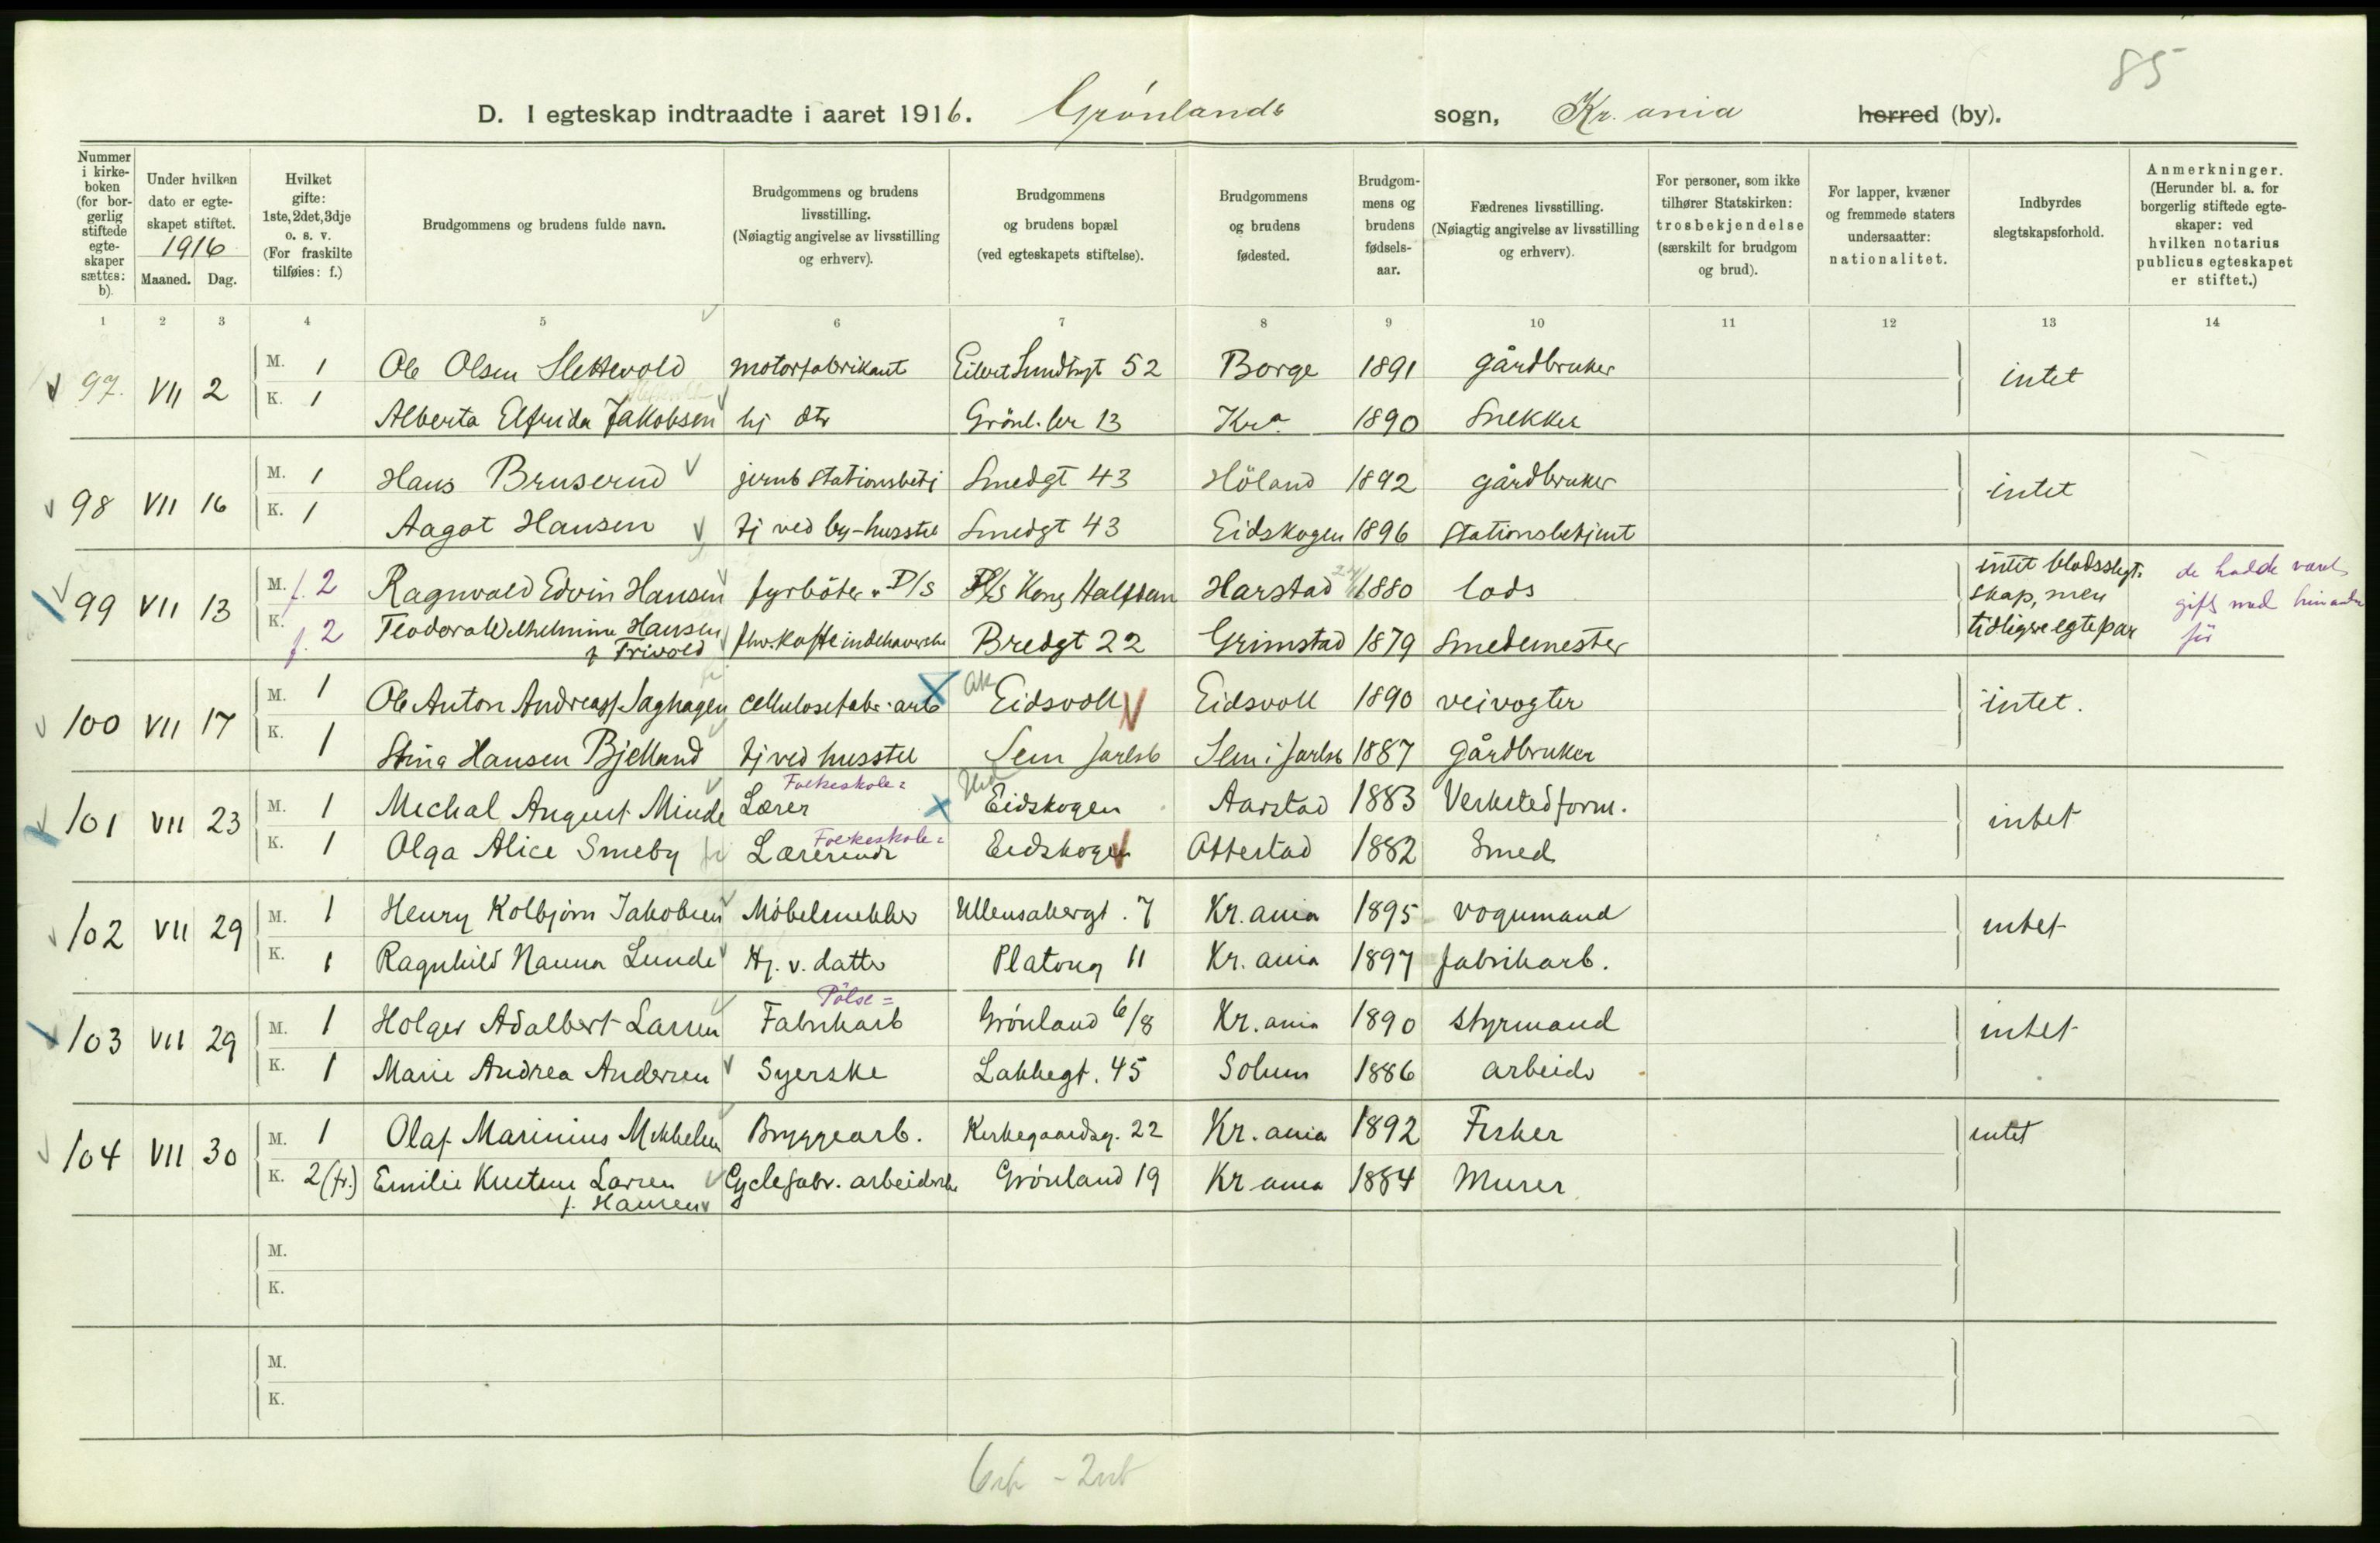 85
D. I egteskap indtraadte i aaret 1916. Grønlands sogn, Kr.ania herred (by).
Nummer i kirkeboken (for borgerlig stiftede egteskaper sættes: b).
Under hvilken dato er egteskapet stiftet. 1916 Maaned. Dag.
Hvilket gifte: 1ste, 2det, 3dje o. s. v. (For fraskilte tilføies: f.)
Brudgommens og brudens fulde navn.
Brudgommens og brudens livsstilling. (Nøiagtig angivelse av livsstilling og erhverv).
Brudgommens og brudens bopæl (ved egteskapets stiftelse).
Brudgommens og brudens fødested.
Brudgommens og brudens fødselsaar.
Fædrenes livsstilling. (Nøiagtig angivelse av livsstilling og erhverv).
For personer, som ikke tilhører Statskirken: trosbekjendelse (særskilt for brudgom og brud).
For lapper, kvæner og fremmede staters undersaatter: nationalitet.
Indbyrdes slegtskapsforhold.
Anmerkninger. (Herunder bl. a. for borgerlig stiftede egteskaper: ved hvilken notarius publicus egteskapet er stiftet.)
1 2 3 4 5 6 7 8 9 10 11 12 13 14
97. VII 2 M. 1 Ole Olsen Slettevold motorfabrikant Eilert Sundtsgt 52 Borge 1891 gårdbruker intet
K. 1 Alberta Elfrida Jakobsen hj dtr Grönl.ler 13 Kra. 1890 Snekker
98 VII 16 M. 1 Hans Bruserud jernb stationsbetj Smedgt 43 Höland 1892 gårdbruker intet
K. 1 Aagot Hansen tj ved by-husstel Smedgt 43 Eidskogen 1896 stationsbetjent
99 VII 13 M. f. 2 Ragnvald Edvin Hansen fyrböter D/S D/S Kong Halfdan Harstad 1880 lods intet blodsslegtskap, men tidligere egtepar de hadde været gift med hinanden før
K. f. 2 Teodora Wilhelmine Hansen f Trivold fhv. kaffeindehaverske Bredgt 22 Grimstad 1879 Smedemester
100 VII 17 M. 1 Ole Anton Andreas f. Saghagen cellulosefabr. arb Ak Eidsvoll Eidsvoll 1890 veivogter intet.
K. 1 Stina Hansen Bjelland tj ved husstel Sem Jarlsb Sem i Jarlsb 1887 gårdbruker
101 VII 23 M. 1 Mechal August Minde Folkeskole= Lærer Hed Eidskogen Aarstad 1883 Verkstedform. intet
K. 1 Olga Alice Smeby Folkeskole= Lærerinde Eidskogen Ottestad 1882 Smed
102 VII 29 M. 1 Henry Kolbjørn Jakobsen Møbelsnekker Ullensakergt. 7 Kr.ania 1895 vognmand intet
K. 1 Ragnhild Nanna Lunde Hj. v. datter Platoug 11 Kr.ania 1897 fabrikarb.
103 VII 29 M. 1 Holger Adalbert Larsen Pölse= Fabrikarb Grønland 6/8 Kr.ania 1890 styrmand intet
K. 1 Marie Andrea Andersen Syerske Lakkegt. 45 Solum 1886 arbeider
104 VII 30 M. 1 Olaf Marinius Mikkelsen Bryggearb. Kirkegaardsg. 22 Kr.ania 1892 Fisker intet
K. 2 (fr.) Emilie Kristine Larsen f. Hansen Cyclefabr. arbeiderske Grønland 19 Kr.ania 1884 Murer
M.
K.
M.
K.